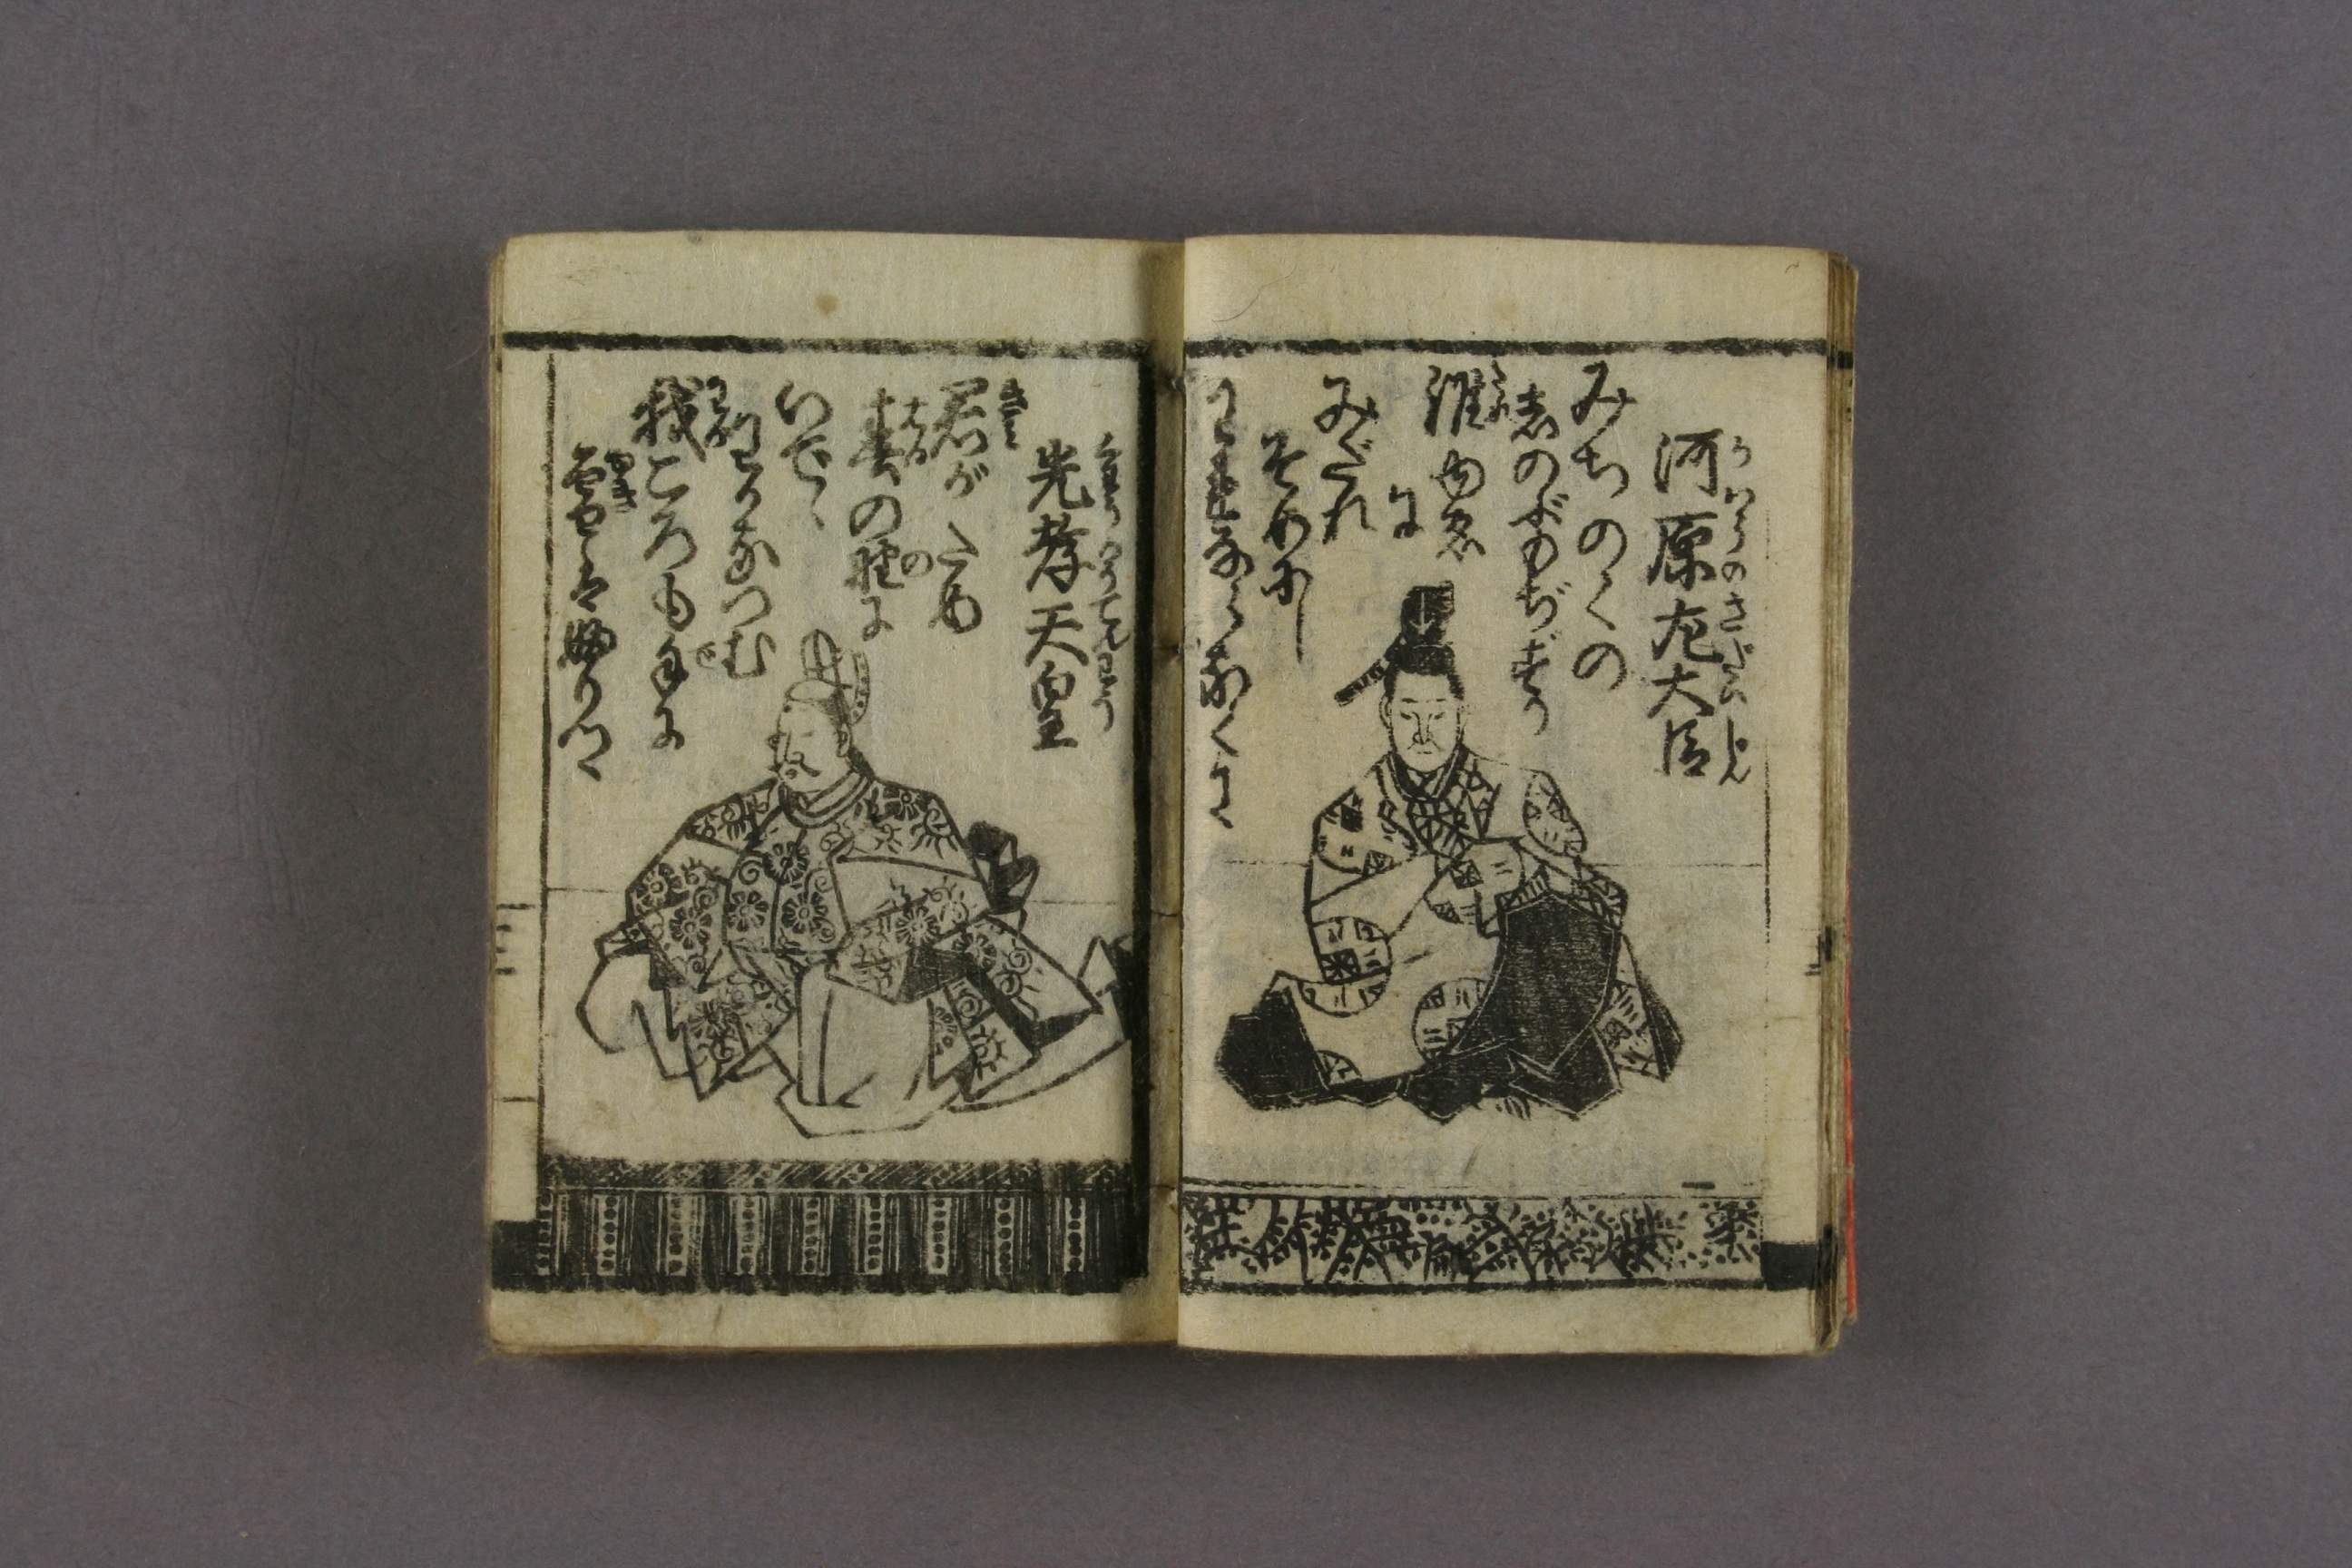 河原左大臣
かはらのさだいじん
みちのくの
志のぶもぢずり
誰ゆゑ
たれ
に
みだれ
そめにし
われならなくに
光孝天皇
くわうかうてんわう
君がため
きみ
春の野に
はる の
いでゝ
わかなつむ
我ころも手に
わが で
雪はふりつゝ
ゆき